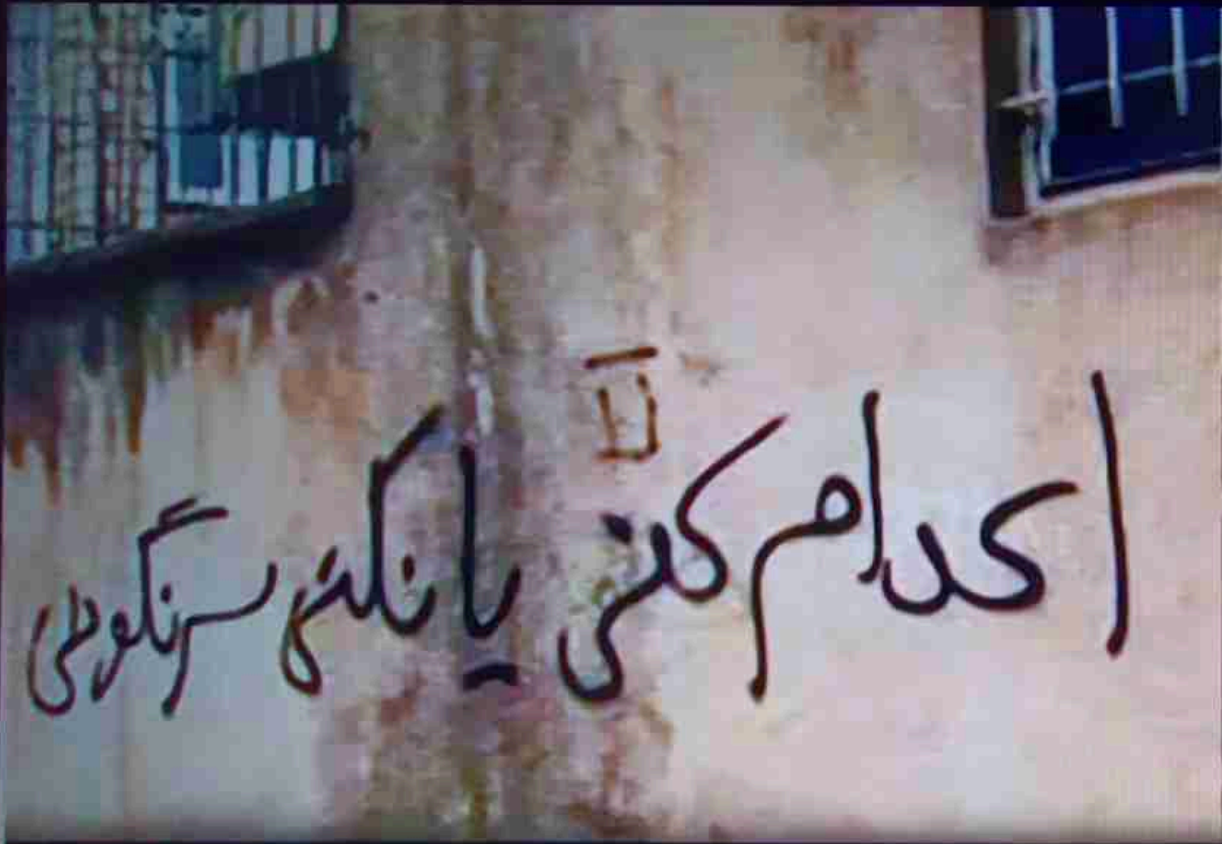 اعدام کنی یا نکنی سرنگونی